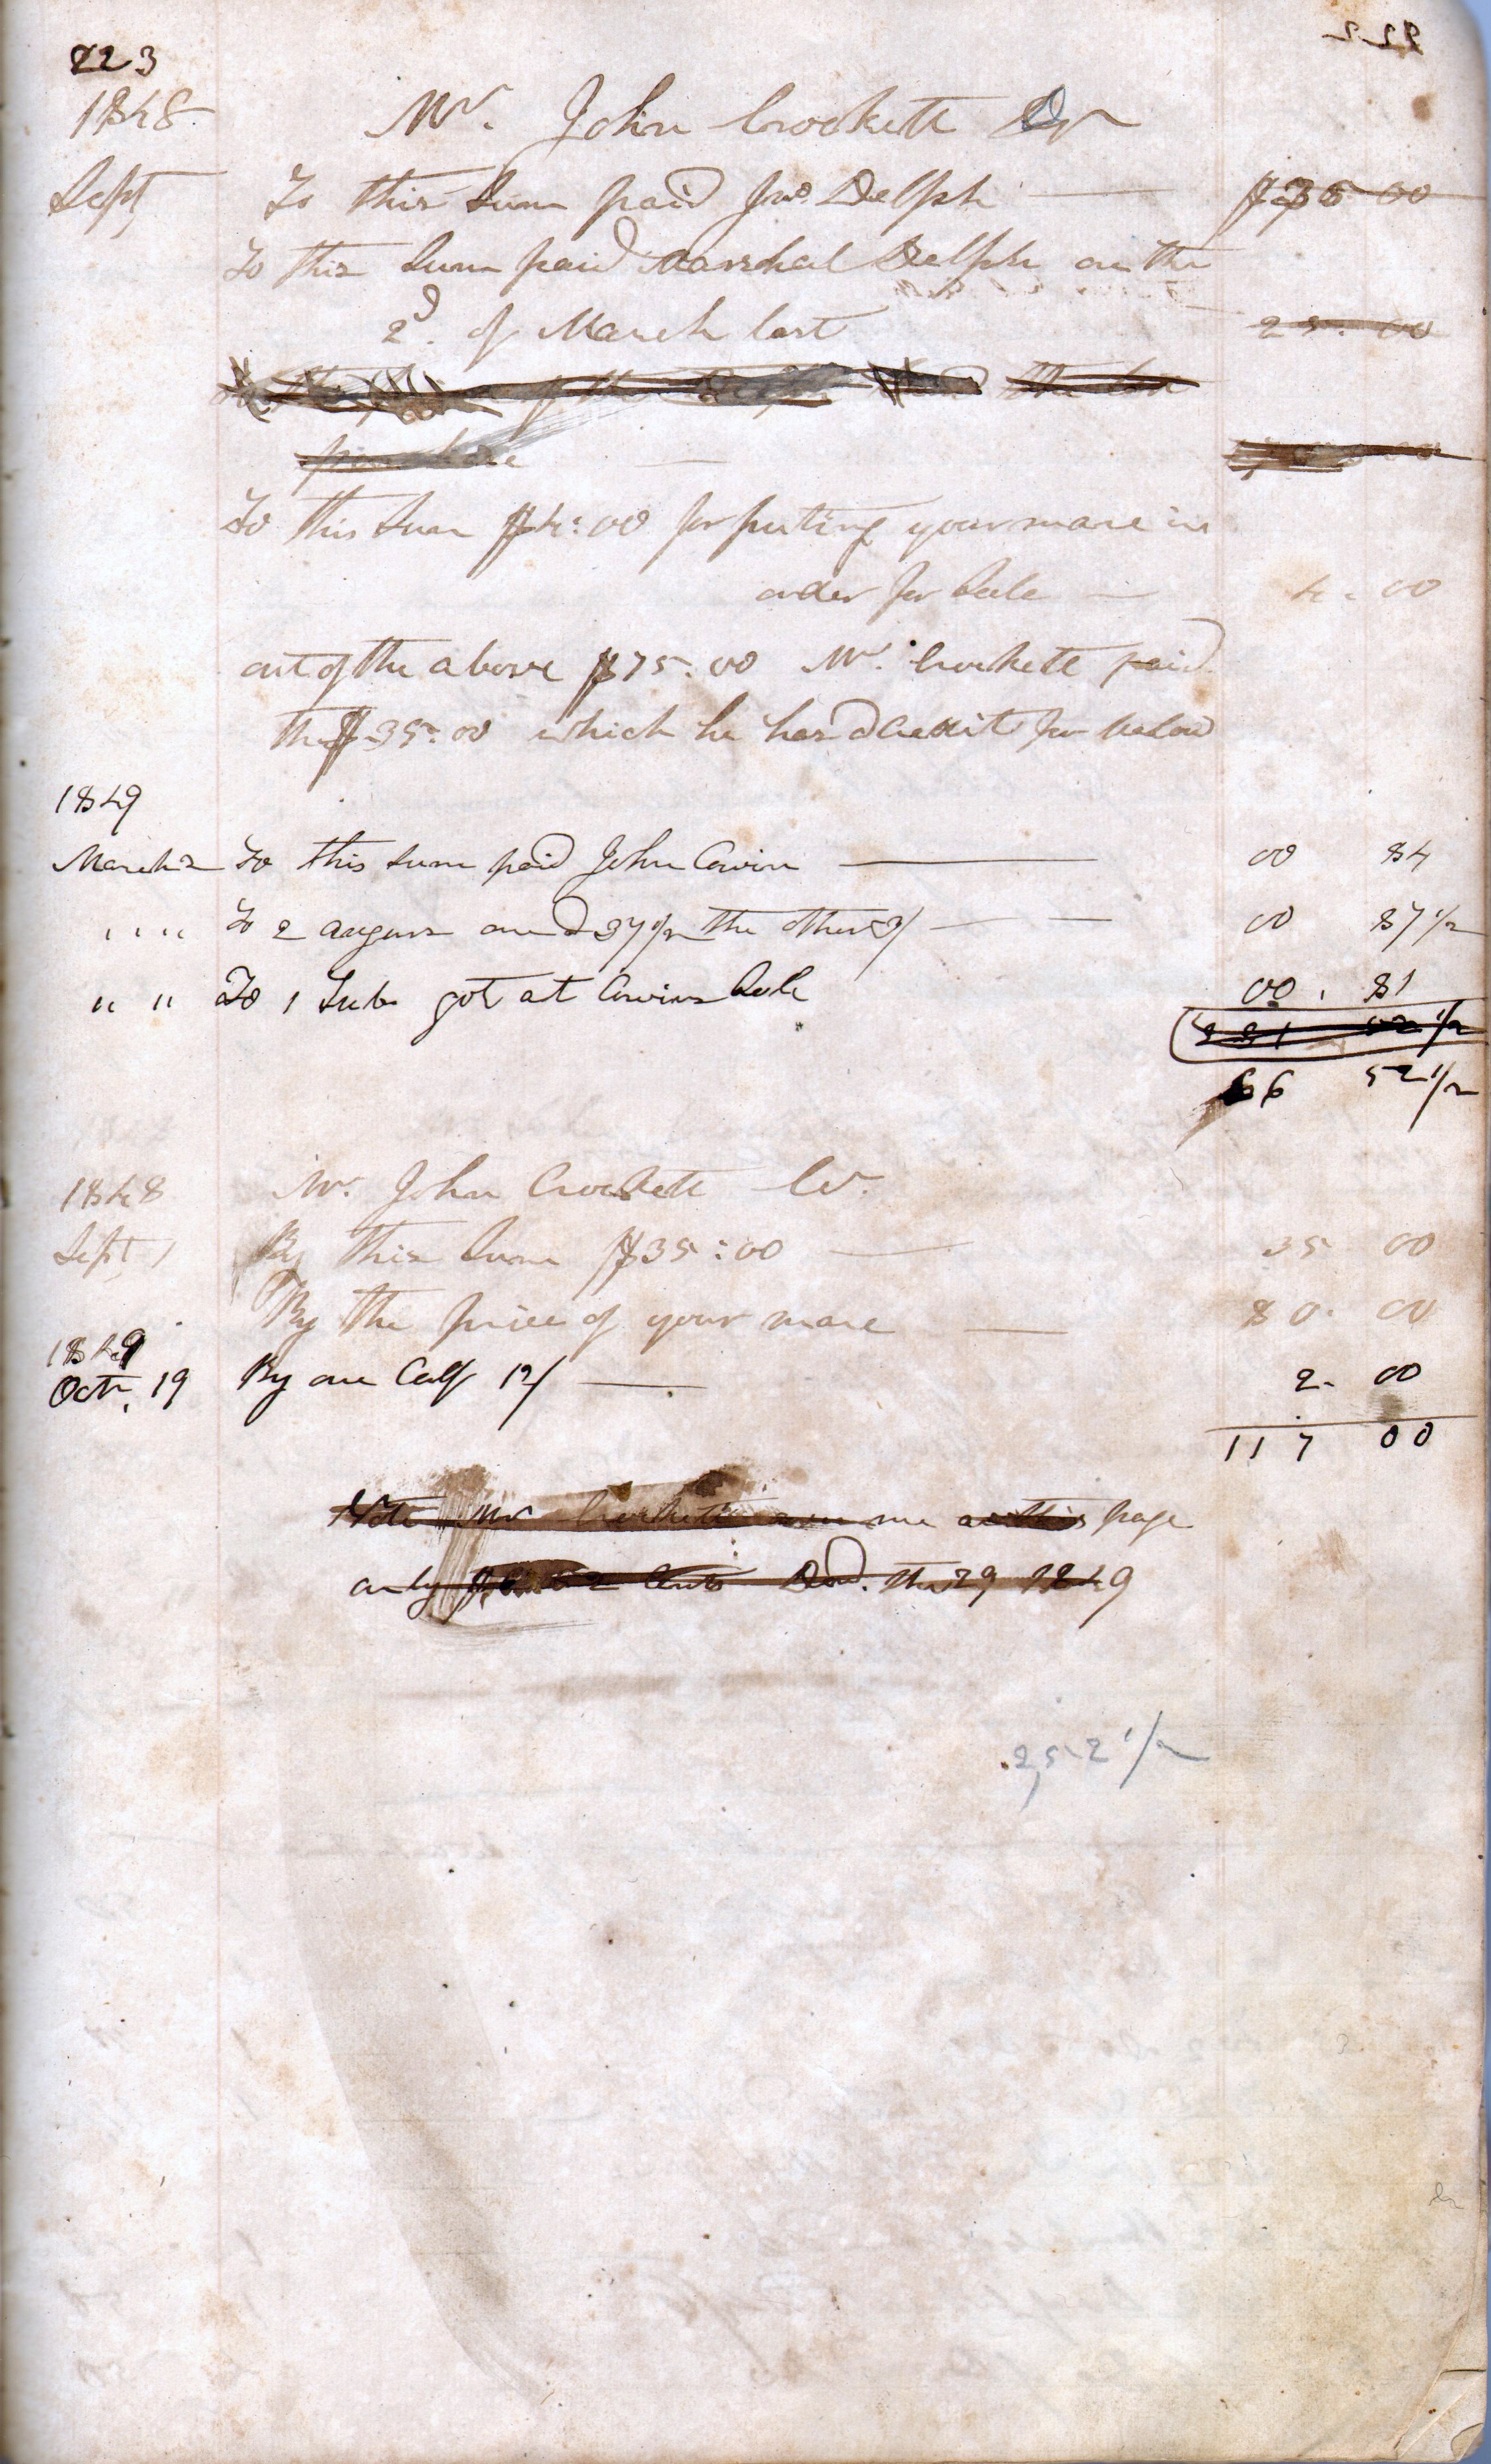 223
1848.
Mr. John Crockett Dr
Sept To this Sum paid Jno Delph $35 00
To this Sum paid Marshal Delph on the
2d. of March last 25. 00
of the
purchase
To this Sum $4:00 for puting your mare in
order for Sale 4. 00
out of the above $75.00 Mr. Crockett paid
the $35:00 which he has d Credit for below
1849
March 2 To this sum paid John Cowin 00 84
" " To 2 augurs one D 37 1/2 the other 3/ 00 87 1/2
" " To 1 Tub got at Cowins Sale 00. 81
52 1/2
66 52 1/2
1848 Mr. John Crockett Cr.
Sept 1 By this Sum $35:00 35 00
By the price of your mare 80. 00
1849
Octr. 19 By one Calf 12/ 2. 00
117 00
Note Mr Crockett owes me on this page
only Cents Decd. the 29 1849
2,52 1/2